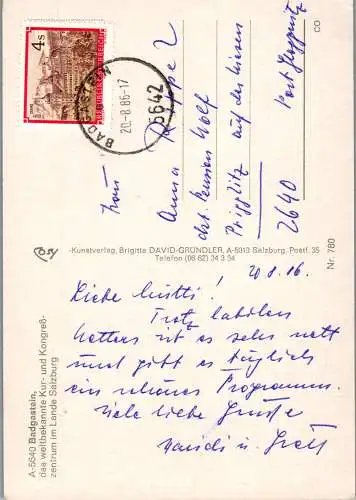 4 s
REPUBLIK ÖSTERREICH
BADGASTEIN
20.-8.86-17
5642
Frau
Anna
dzt. Pension Wolf
Prigglitz auf der Wiesen
2640 Post Gloggnitz
CO
Cosy
-Kunstverlag, Brigitte DAVID-GRÜNDLER, A-5013 Salzburg, Postf. 35
Telefon (06 62) 34 3 54
Nr. 780
A-5640 Badgastein,
das weltbekannte Kur- und Kongreß-
zentrum im Lande Salzburg
20.8.86.
Liebe Mutti!
Trotz labilen
Wetters ist es sehr nett
und gibt es täglich
ein schönes Programm.
Viele liebe Grüße
Haridi u. Grett